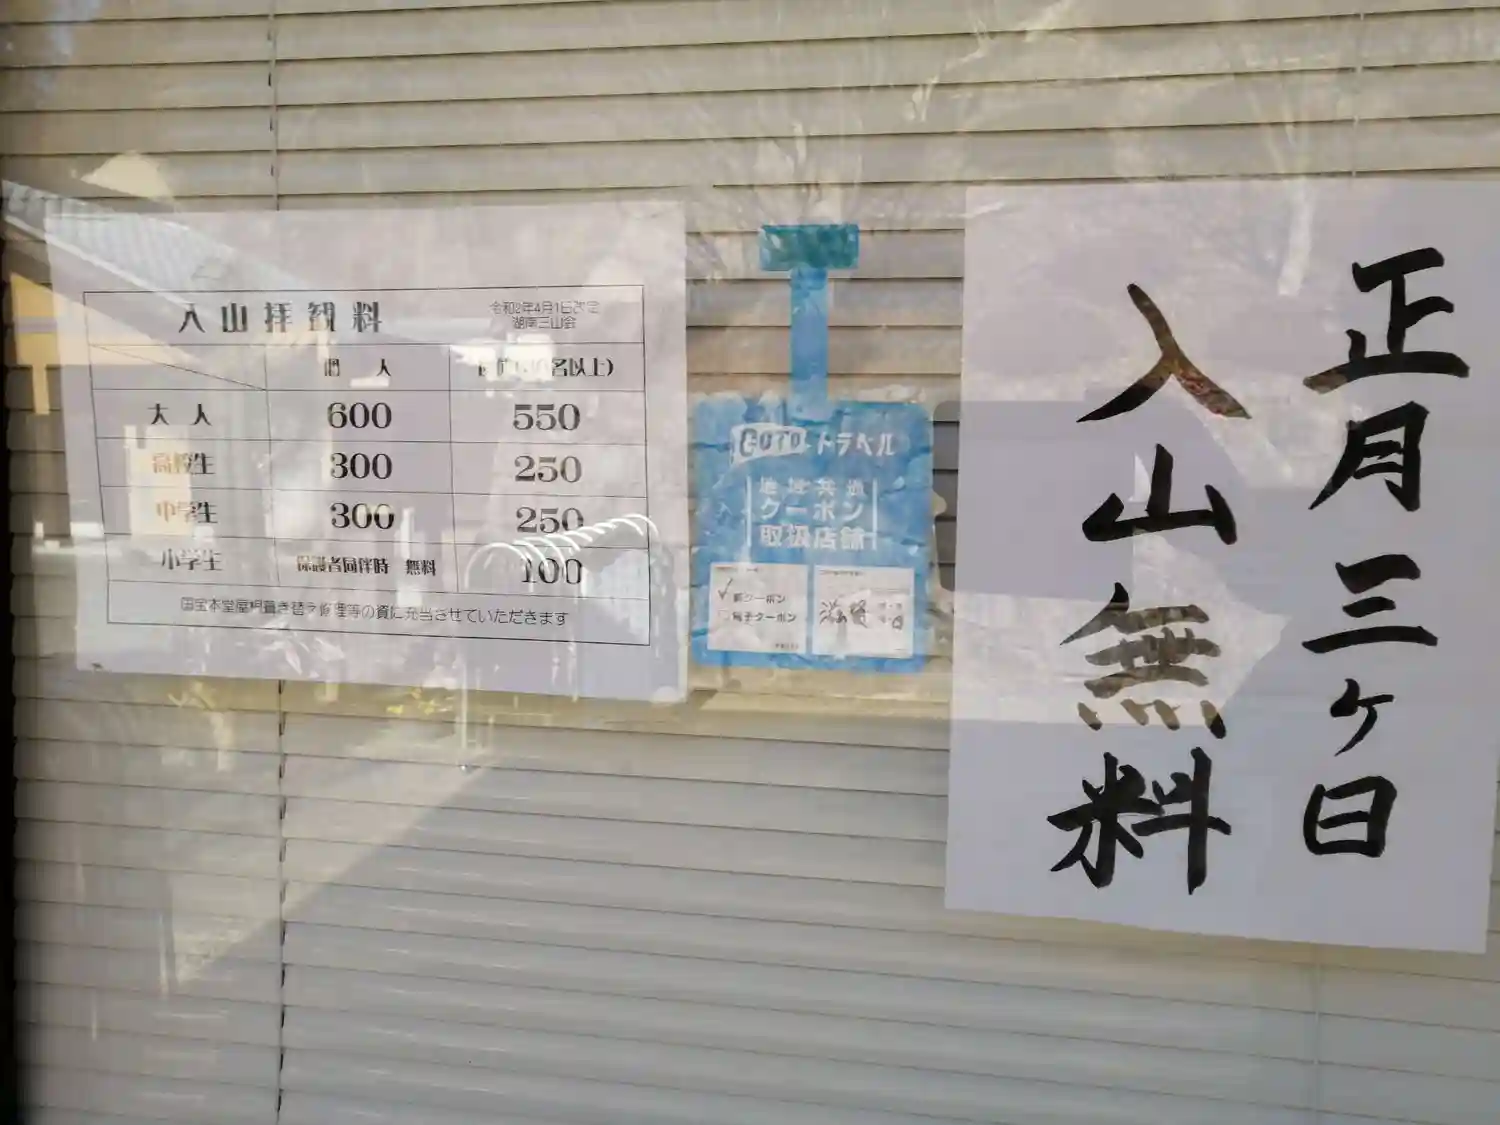 入山拝観料
令和2年4月1日改定
湖南三山会
個人
団体(30名以上)
大人 600 550
高校生 300 250
中学生 300 250
小学生 保護者同伴時 無料 100
国宝本堂屋根葺き替え修理等の資に充当させていただきます
GOTOトラベル
地域共通
クーポン
取扱店舗
紙クーポン
電子クーポン
滋賀
正月三ヶ日
入山無料